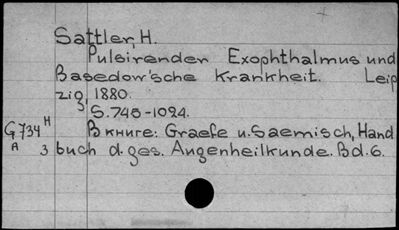 Sattler, H.
Pulsirender Exophthalmus und
Basedow'sche Krankheit. Leip
zig, 1880.
S. 745-1024.
G 734 H
A 3
В книге: Graefe u. Saemisch, Hand
buch d. ges. Augenheilkunde. Bd. 6.